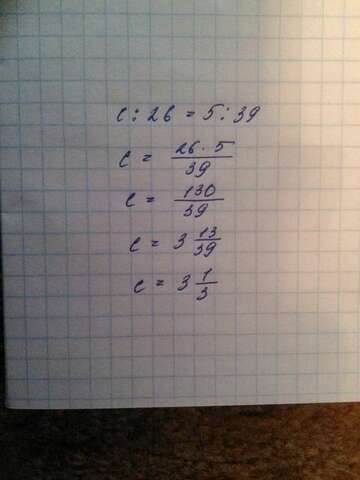 c : 26 = 5 : 39
c = 26 · 5 / 39
c = 130 / 39
c = 3 13/39
c = 3 1/3